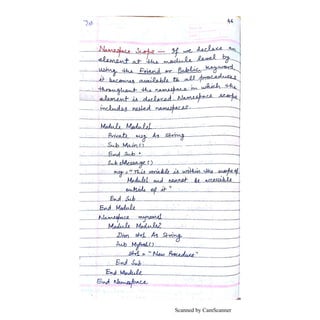 46
Namespace Scope :- If we declare an
element at the module level by
using the Friend or Public keyword,
it becomes available to all procedures
throughout the namespace in which the
element is declared. Namespace scope
includes nested namespaces.
Module Module1
Private msg As String
Sub Main()
End Sub
Sub cMessage()
msg = "This variable is within the scope of
Module1 and cannot be accessible
outside of it"
End Sub
End Module
Namespace
Module Module2
Dim str1 As String
Sub
str1 = "New Procedure"
End Sub
End Module
End Namespace
Scanned by CamScanner